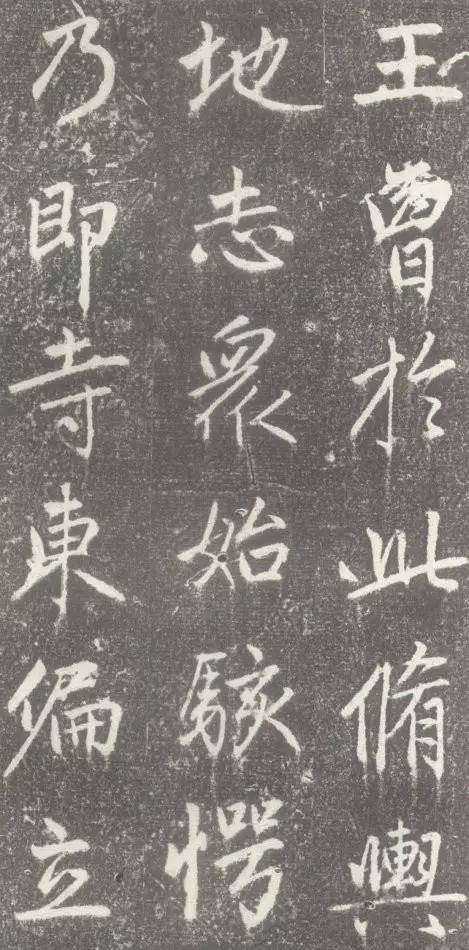 王曾於此脩輿
地志衆始駭愕
乃即寺東偏立